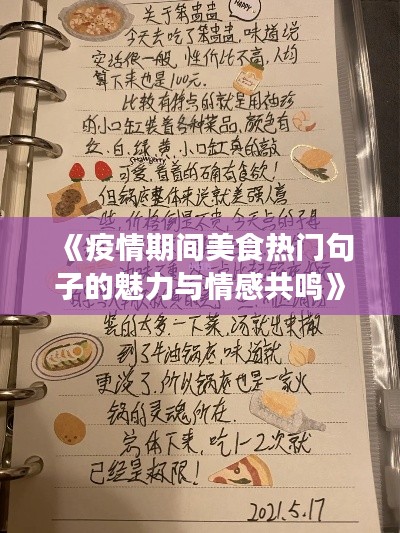 HAPPY
关于笨蛊蛊
今天去吃了笨蛊蛊,味道说
实话很一般,性价比不高,人均
算下来也是100元.
比较有特点的就是用袖珍
的小口缸装着各种菜品,颜色有
红、白、绿、黄、小口缸真的高
Strawberry
可爱,看着的确有食欲!
但锅底整体来说就差强人意
一些,价格倒是不贵,今天点的不是
《疫情期间美食热门句
子的魅力与情感共鸣》
装的太多,一下菜,汤就出来撒
到了牛油锅底,味道就
更淡了.所以锅底也是一家火
锅的灵魂所在.
总体下来,吃1-2次就
已经是极限!
2021.5.17